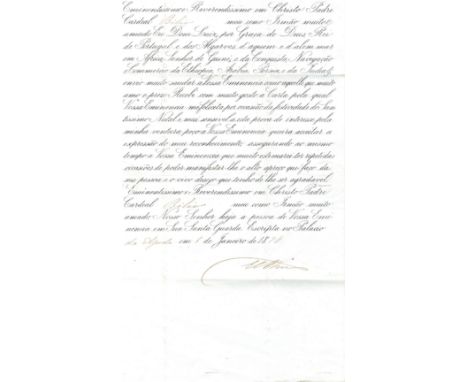 Eminentissimo e Reverendissimo em Christo Padre
Cardeal meu como Irmão muito
amado Eu Dom Luiz, por Graça de Deus, Rei
de Portugal e dos Algarves, d'aquem e d'alem mar
em Africa, Senhor de Guiné, e da Conquista, Navegação
e Commercio da Ethiopia, Arabia, Persia, e da India &
envio muito saudar a Vossa Eminencia como aquelle que muito
amo e prezo. Recebi com muito gosto a Carta pela qual
Vossa Eminencia me felicita, por occasião da festividade do San-
tissimo Natal, e mui sensivel a esta prova de interesse pela
minha ventura, peço a Vossa Eminencia queira acceitar a
expressão do meu reconhecimento; assegurando ao mesmo
tempo a Vossa Eminencia que muito estimarei ter repetidas
occasiões de poder manifestar-lhe o alto apreço que faço da
sua pessoa e o vivo desejo que tenho de lhe ser agradavel.
Eminentissimo e Reverendissimo em Christo Padre
Cardeal meu como Irmão muito
amado Nosso Senhor haja a pessoa de Vossa Emi-
nencia em Sua Santa Guarda. Escripta no Palacio
da Ajuda em de Janeiro de 18